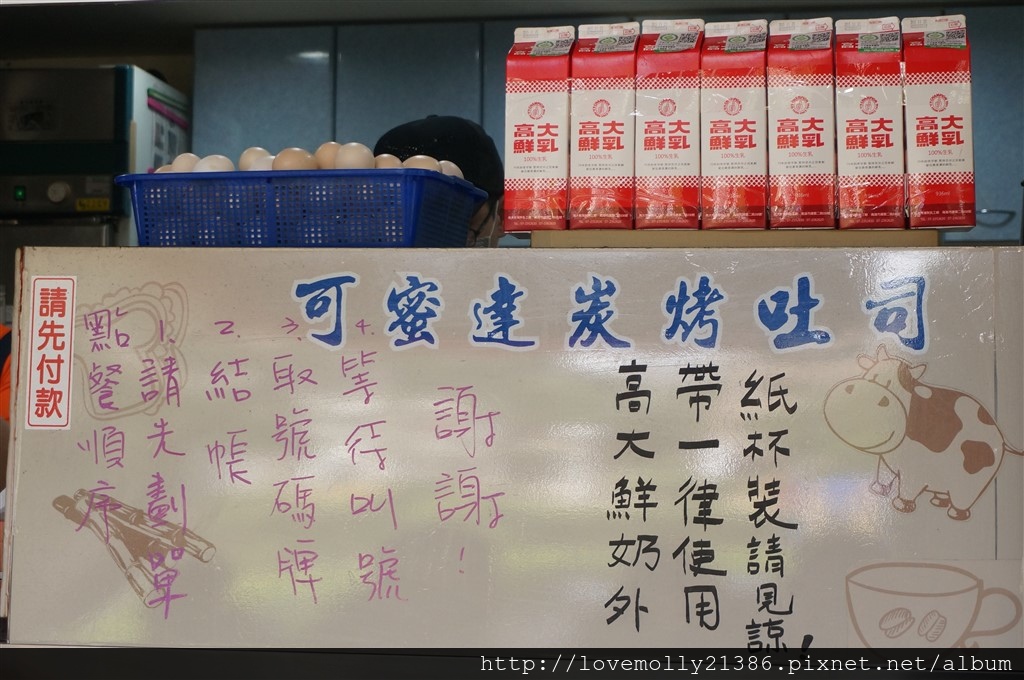 高大
鮮乳
100%生乳
高大
鮮乳
100%生乳
高大
鮮乳
100%生乳
高大
鮮乳
100%生乳
高大
鮮乳
100%生乳
高大
鮮乳
100%生乳
高大
鮮乳
100%生乳
可蜜達炭烤吐司
請先付款
點餐順序
1.請先劃單
2.結帳
3.取號碼牌
4.等待叫號
謝謝!
高大鮮奶外
帶一律使用
紙杯裝請見諒!
http://lovemolly21386.pixnet.net/album